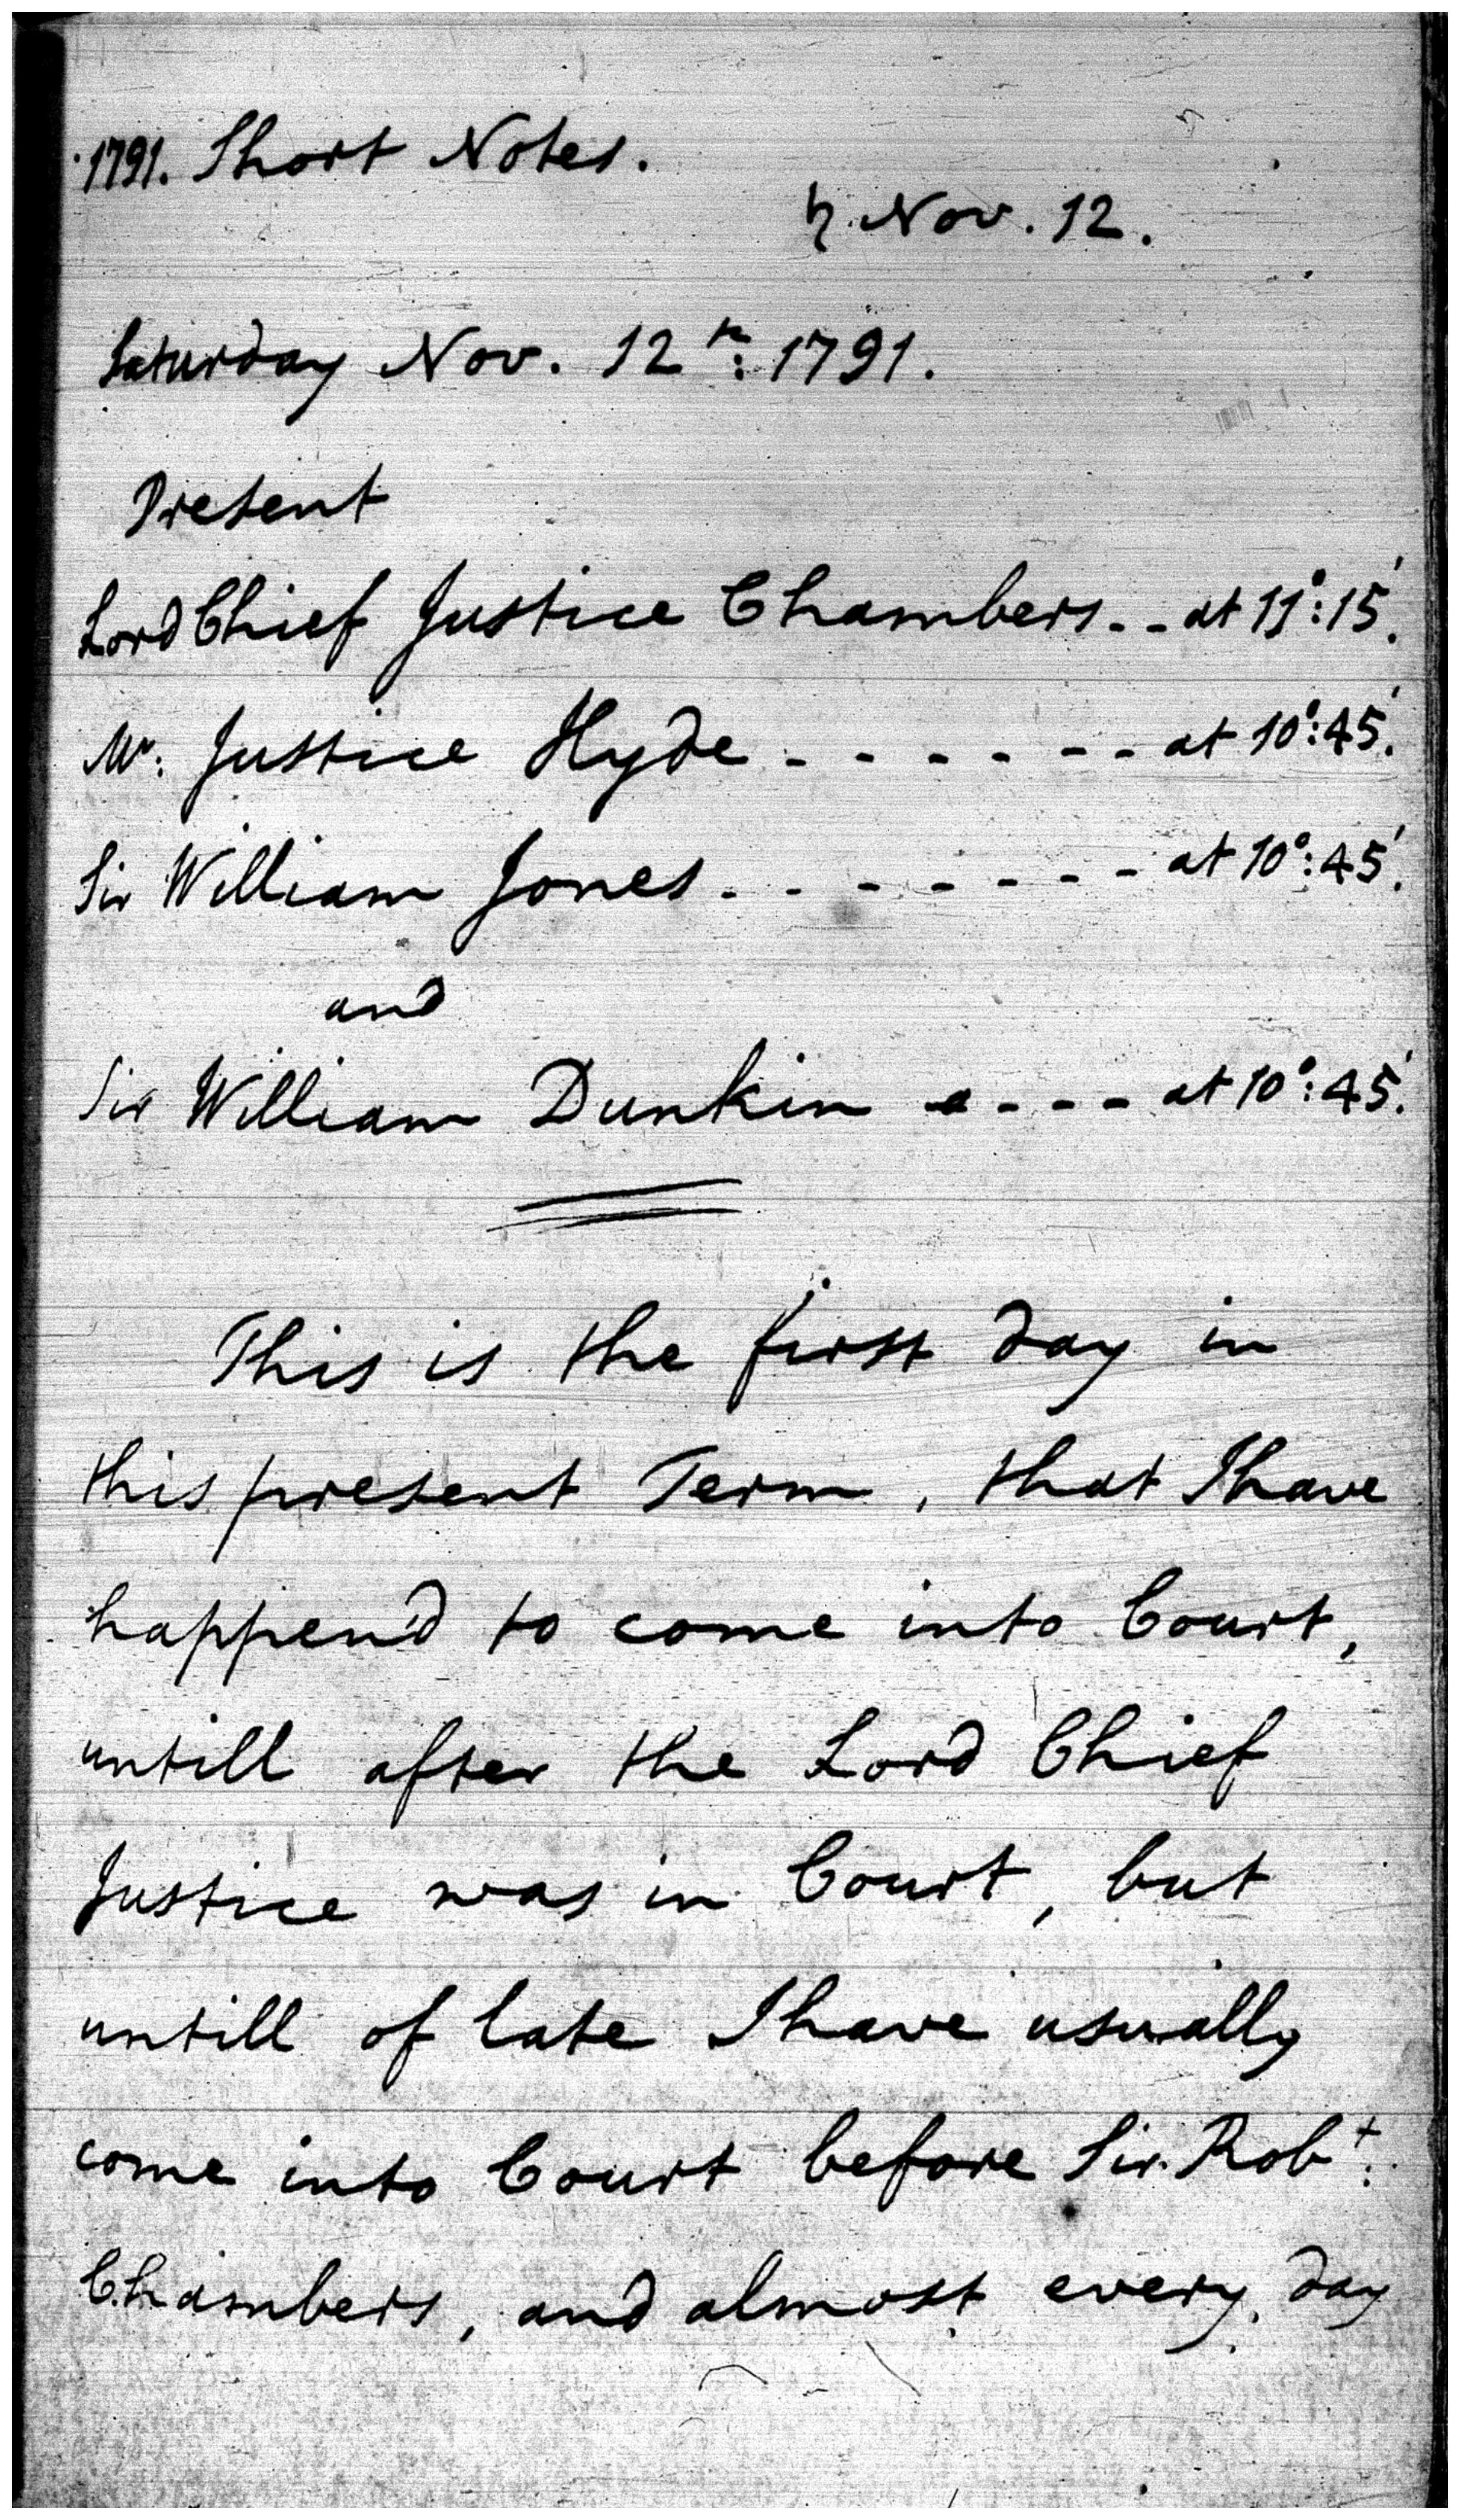 1791. Short Notes.
♄ Nov. 12.
Saturday Nov. 12th: 1791.
Present
Lord Chief Justice Chambers - - at 11°: 15'.
Mr. Justice Hyde - - - - - - at 10°: 45'.
Sir William Jones - - - - - - - at 10°: 45'.
and
Sir William Dunkin - - - - at 10°: 45'.
This is the first day in
this present Term, that I have
happen'd to come into Court,
untill after the Lord Chief
Justice was in Court, but
untill of late I have usually
come into Court before Sir Robt:
Chambers, and almost every day